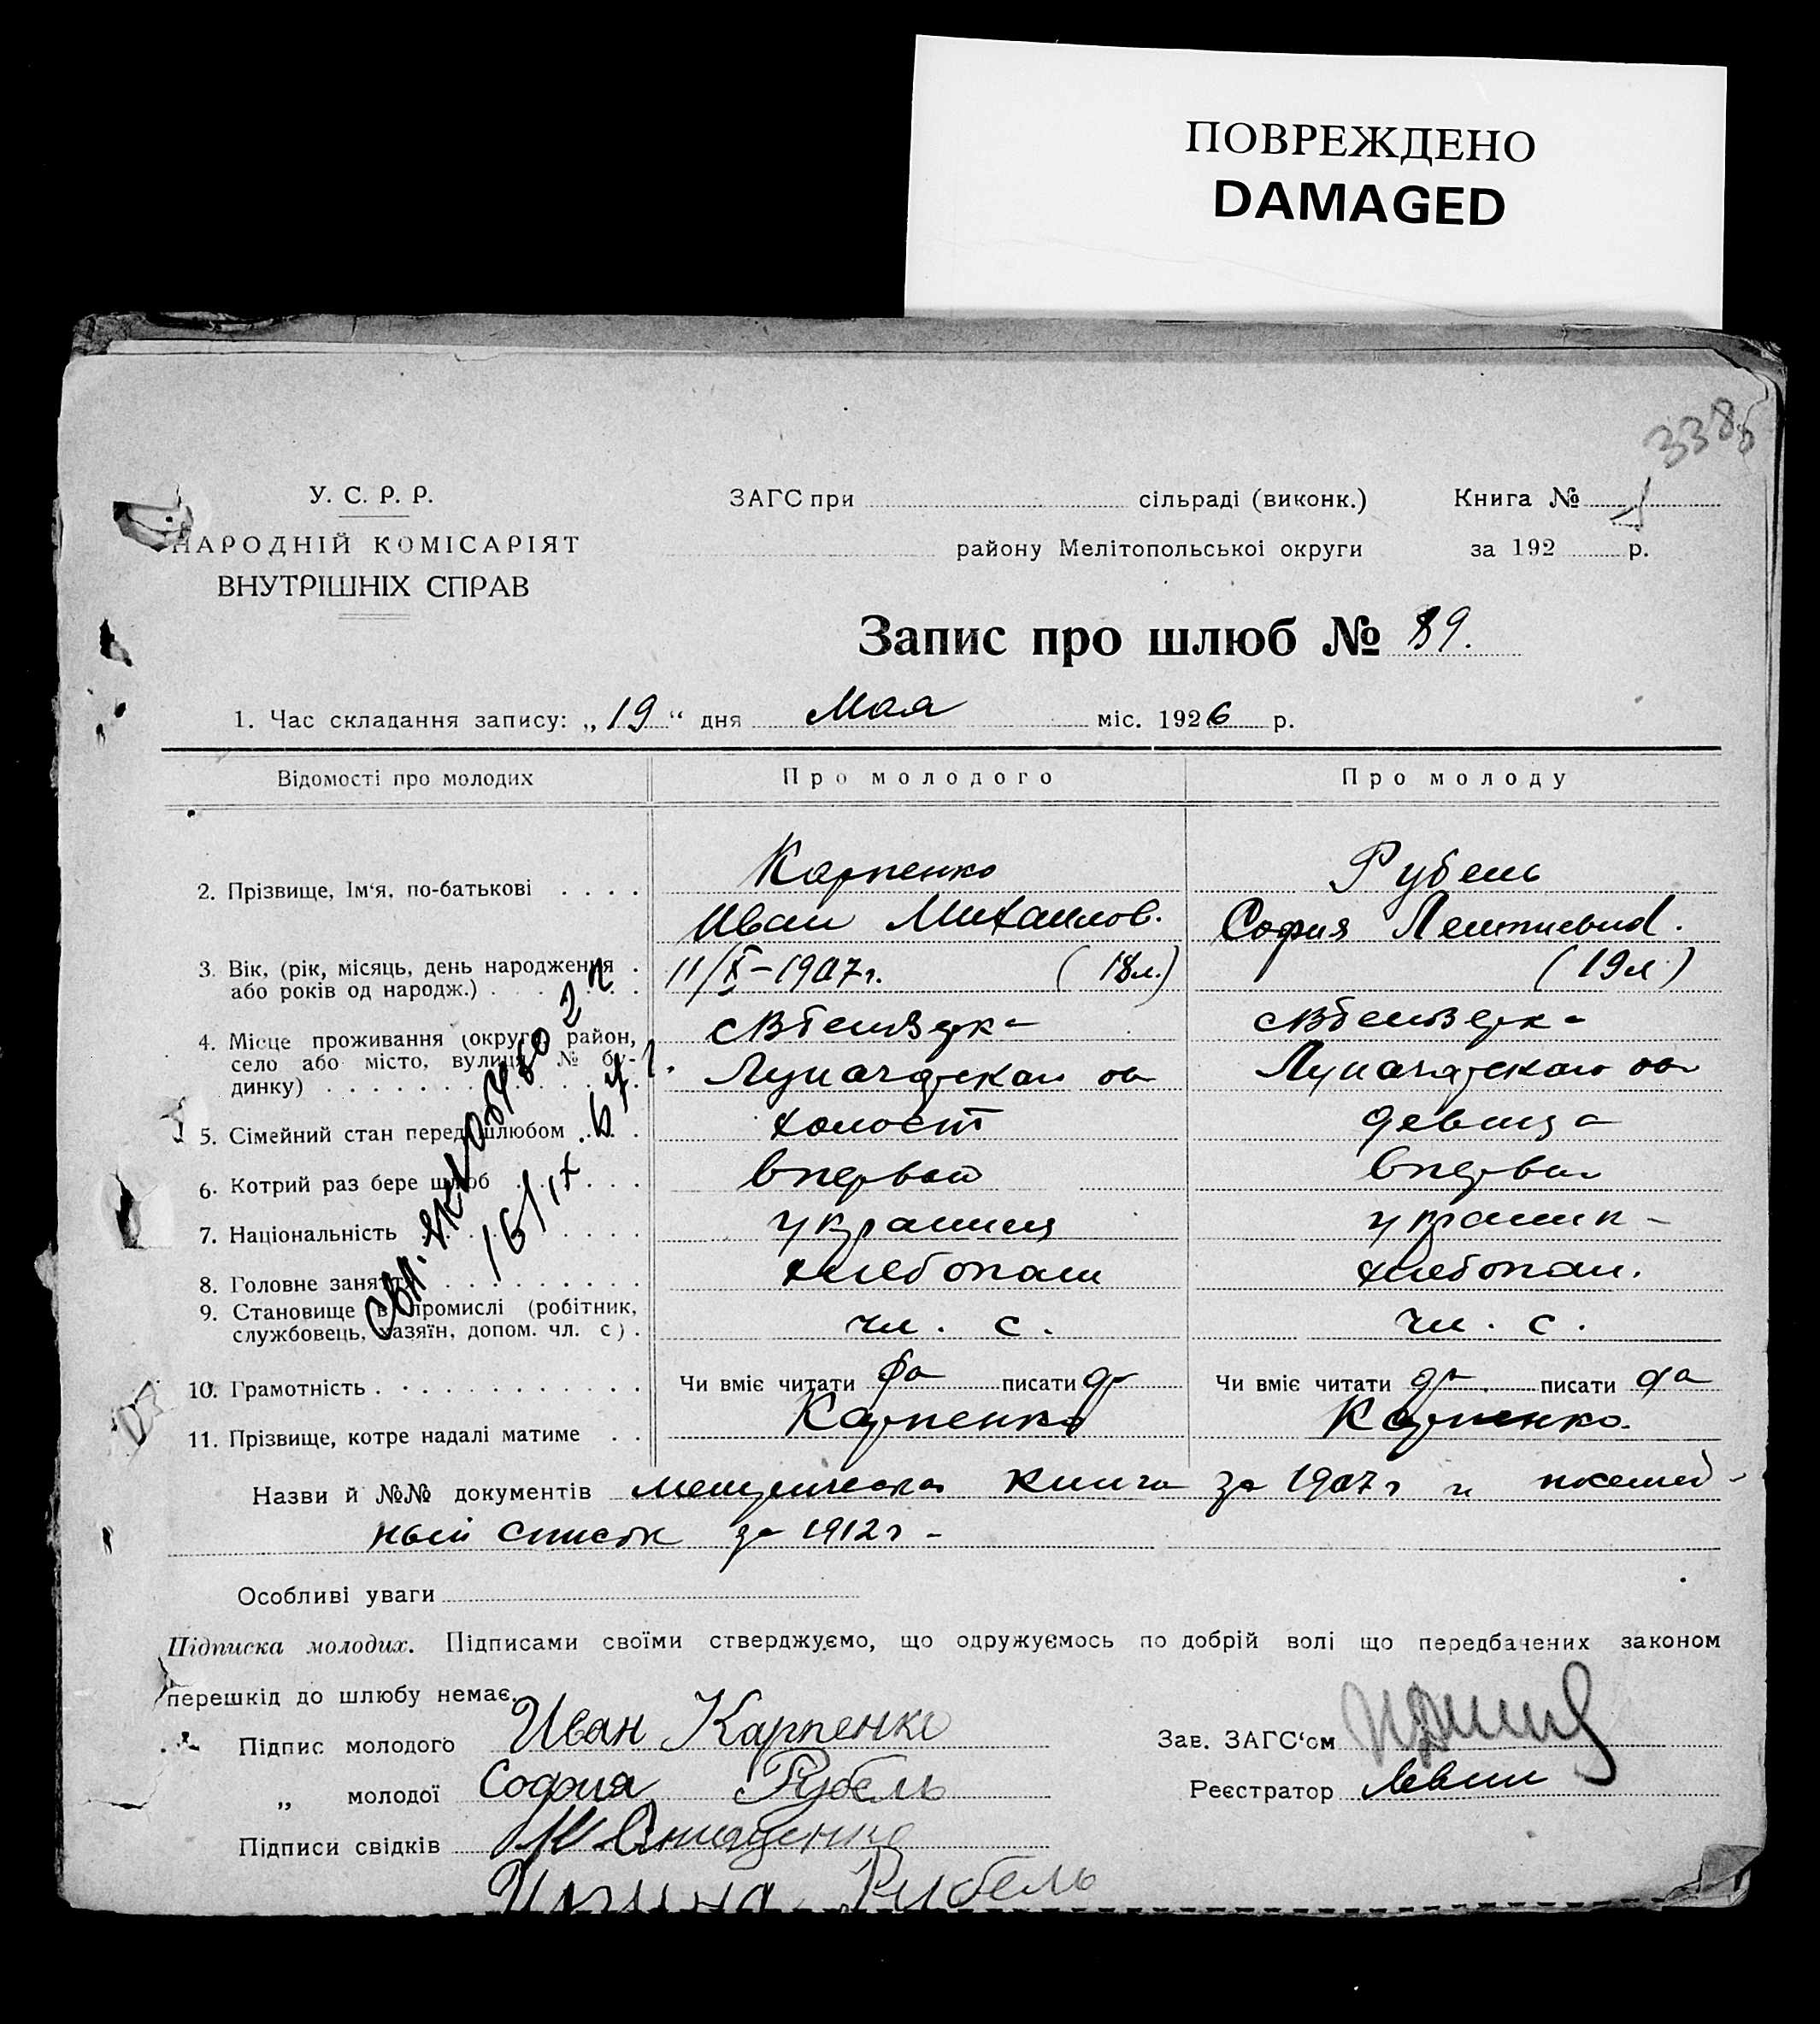 ПОВРЕЖДЕНО
DAMAGED
338
У. С. Р. Р.
НАРОДНІЙ КОМІСАРІЯТ
ВНУТРІШНІХ СПРАВ
ЗАГС при сільраді (виконк.) Книга №
району Мелітопольської округи за 192 р.
Запис про шлюб № 89.
1. Час складання запису: „19“ дня Мая міс. 1926 р.
Відомості про молодих Про молодого Про молоду
2. Прізвище, Ім‘я, по-батькові . . . . Карпенко Рубель
Иван Михаилов. София
3. Вік, (рік, місяць, день народження . 11/X-1907г. (18л.) (19л)
або років од народж.) . . . . . .
4. Місце проживання (округа, район,
село або місто, вулиця, № бу-
динку) . . . . . . . . . . . .
16/IX 67г.
5. Сімейний стан перед шлюбом . . . . холост девица
6. Котрий раз бере шлюб . . . . . . . впервой
7. Національність . . . . . . . . . . украинец
8. Головне заняття . . . . . . . . . . хлебопаш хлебопаш.
9. Становище в промислі (робітник,
службовець, хазяїн, допом. чл. с) . чл. с. чл. с.
10. Грамотність . . . . . . . . . . . . Чи вміє читати да писати да Чи вміє читати да писати да
11. Прізвище, котре надалі матиме . . Карпенко Карпенко.
Назви й №№ документів метрическая книга за 1907г и посемей-
ный список за 1912г -
Особливі уваги
Підписка молодих. Підписами своїми стверджуємо, що одружуємось по добрій волі що передбачених законом
перешкід до шлюбу немає.
Підпис молодого Иван Карпенко Зав. ЗАГС‘ом
„ молодої София Рубель Реєстратор Левин
Підписи свідків
Рубель